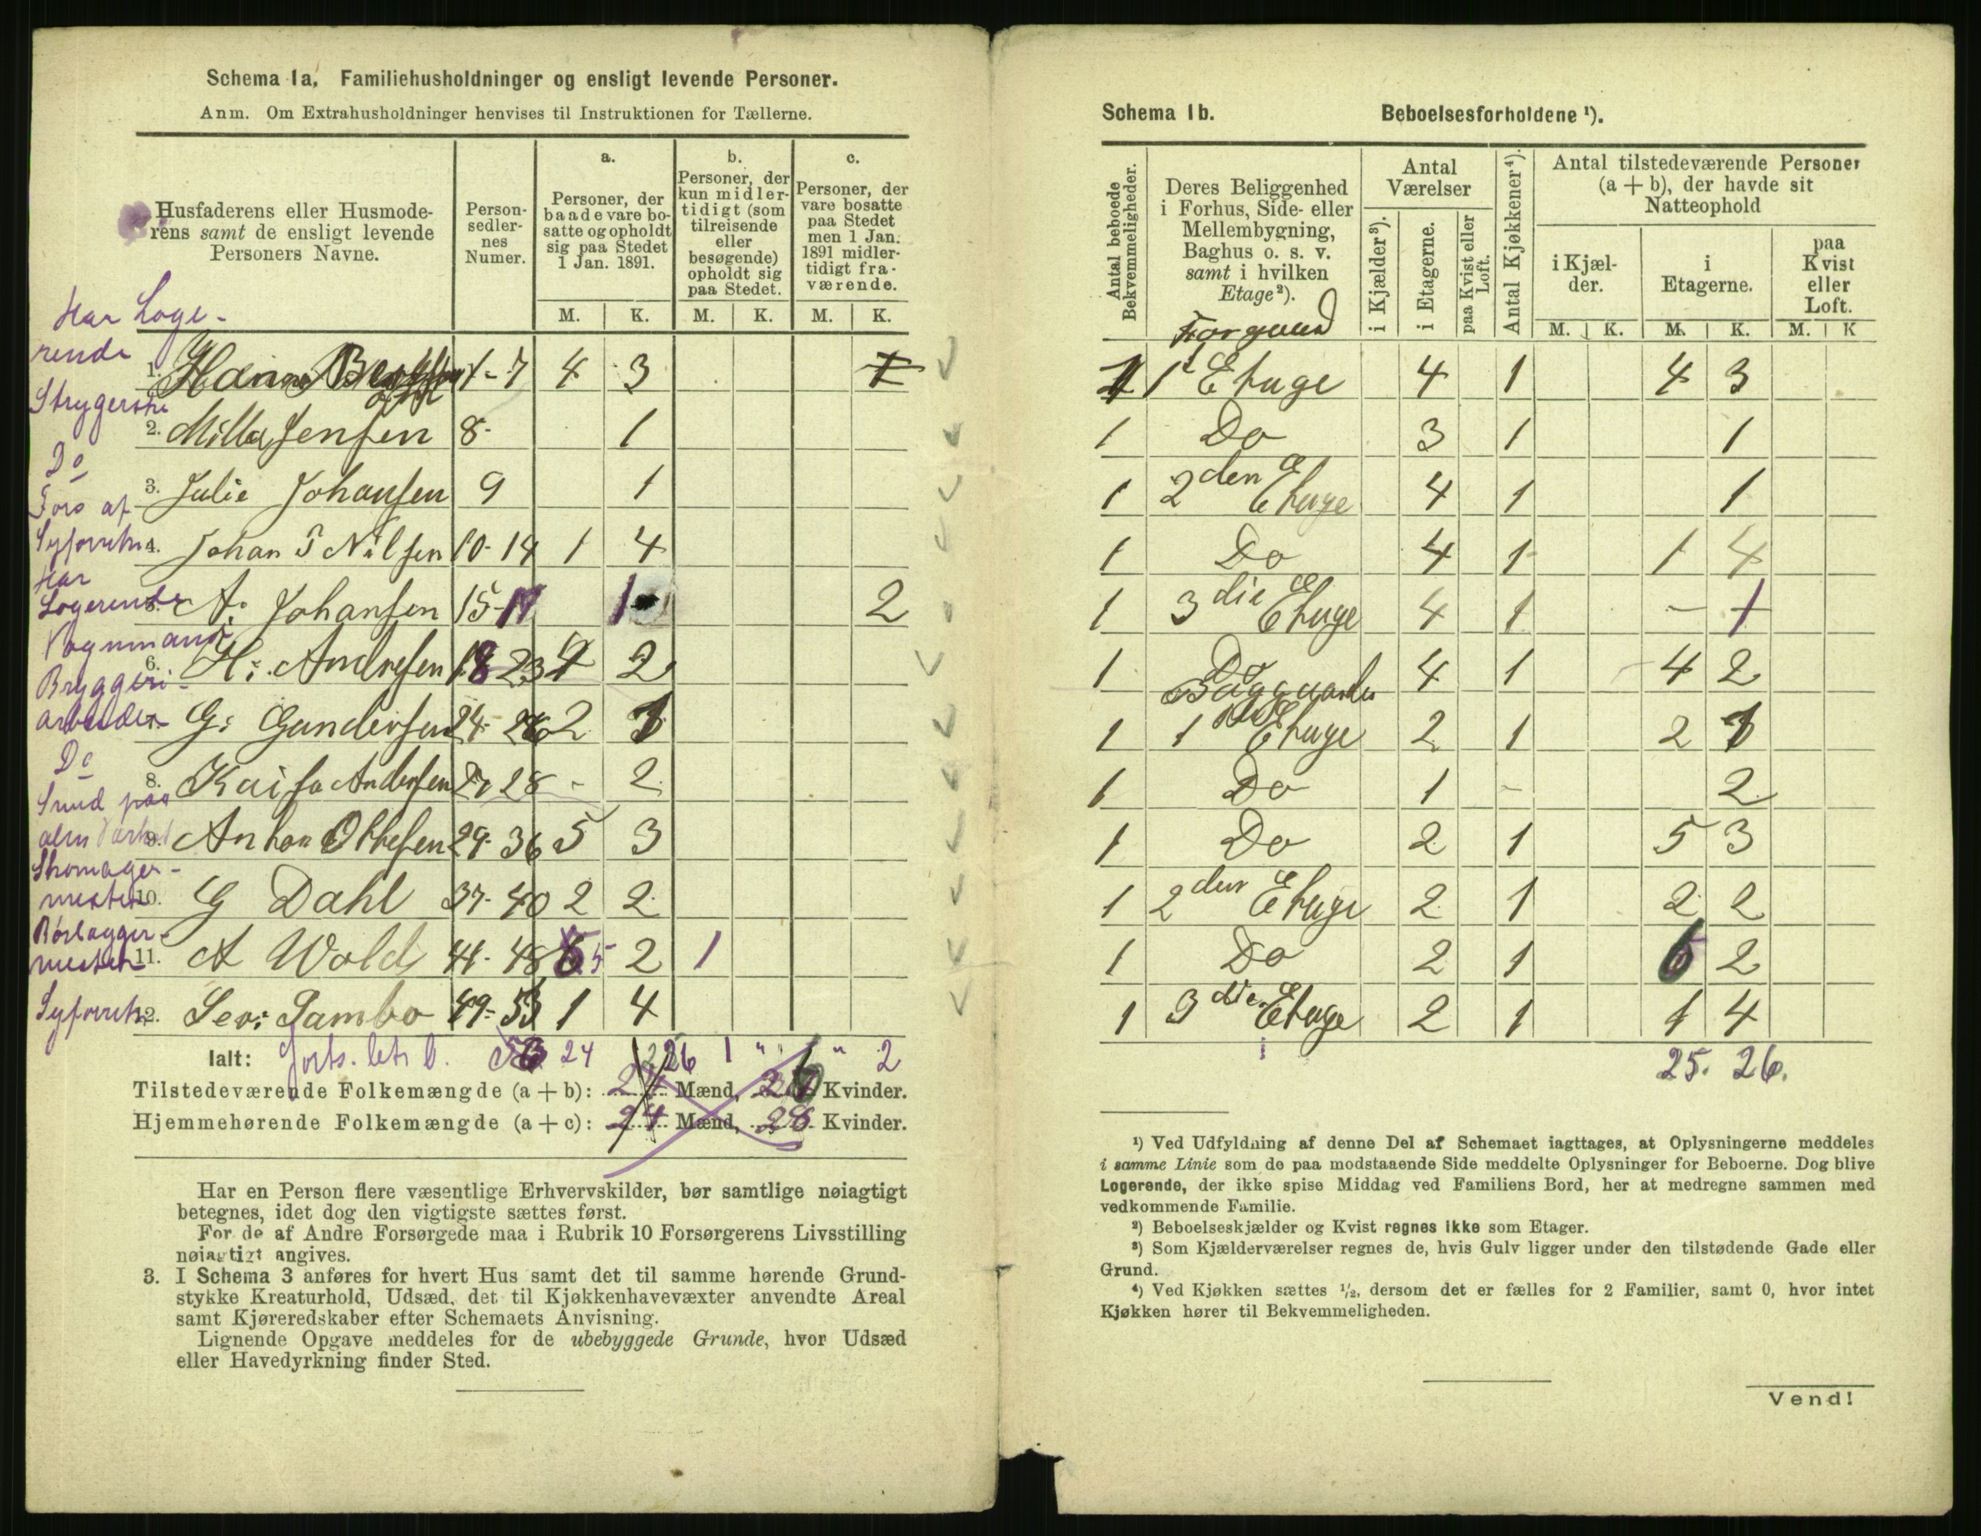 Schema 1a. Familiehusholdninger og ensligt levende Personer.
Anm. Om Extrahusholdninger henvises til Instruktionen for Tællerne.
Husfaderens eller Husmoderens samt de ensligt levende Personers Navne.
Personsedlernes Numer.
a.
Personer, der baade vare bosatte og opholdt sig paa Stedet 1 Jan. 1891.
b.
Personer, der kun midlertidigt (som tilreisende eller besøgende) opholdt sig paa Stedet.
c.
Personer, der vare bosatte paa Stedet men 1 Jan. 1891 midlertidigt fraværende.
M. K. M. K. M. K.
Har Logerende
1. Hanna 1-7 4 3 1
Strygerske
2. Milla Jensen 8- 1
Do
3. Julie Johansen 9 1
Fors af Syforretn
4. Johan T Nilsen 10-14 1 4
Har Logerende
5. A. Johansen 15-17 1 2
Vognmand
6. H. Andresen 18 23 4 2
Bryggeriarbeider
7. G. Gundersen 24-26 2 1
Do
8. Kaisa Andersen 27 28 - 2
Smed paa
9. Anton Ottesen 29-36 5 3
Skomagermester
10. G Dahl 37-40 2 2
Rørlæggermester
11. A Wold 41-48 5 2 1
Syforretn
12. Sev. Tambo 49-53 1 4
Ialt: 24 26 1 " " 2
Tilstedeværende Folkemængde (a + b): 24 Mænd, Kvinder.
Hjemmehørende Folkemængde (a + c): 24 Mænd, 28 Kvinder.
Har en Person flere væsentlige Erhvervskilder, bør samtlige nøiagtigt
betegnes, idet dog den vigtigste sættes først.
For de af Andre Forsørgede maa i Rubrik 10 Forsørgerens Livsstilling
nøiagtigt angives.
3. I Schema 3 anføres for hvert Hus samt det til samme hørende Grund-
stykke Kreaturhold, Udsæd, det til Kjøkkenhavevæxter anvendte Areal
samt Kjøreredskaber efter Schemaets Anvisning.
Lignende Opgave meddeles for de ubebyggede Grunde, hvor Udsæd
eller Havedyrkning finder Sted.
Schema 1b. Beboelsesforholdene ¹).
Antal beboede Bekvemmeligheder.
Deres Beliggenhed i Forhus, Side- eller Mellembygning, Baghus o. s. v. samt i hvilken Etage²).
Antal Værelser
i Kjælder³).
i Etagerne.
paa Kvist eller Loft.
Antal Kjøkkener⁴).
Antal tilstedeværende Personer (a + b), der havde sit Natteophold
i Kjælder.
i Etagerne.
paa Kvist eller Loft.
M. K. M. K. M. K
Forgaard
1 1 Etage 4 1 4 3
1 Do 3 1 1
1 2den Etage 4 1 1
1 Do 4 1 1 4
1 3die Etage 4 1 - 1
1 Do 4 1 4 2
Baggaarden
1 1 Etage 2 1 2 1
1 Do 1 - 2
1 Do 2 1 5 3
1 2den Etage 2 1 2 2
1 Do 2 1 6 2
1 3die Etage 2 1 1 4
25. 26.
¹) Ved Udfyldning af denne Del af Schemaet iagttages, at Oplysningerne meddeles
i samme Linie som de paa modstaaende Side meddelte Oplysninger for Beboerne. Dog blive
Logerende, der ikke spise Middag ved Familiens Bord, her at medregne sammen med
vedkommende Familie.
²) Beboelseskjælder og Kvist regnes ikke som Etager.
³) Som Kjælderværelser regnes de, hvis Gulv ligger under den tilstødende Gade eller
Grund.
⁴) Ved Kjøkken sættes ½, dersom det er fælles for 2 Familier, samt 0, hvor intet
Kjøkken hører til Bekvemmeligheden.
Vend!